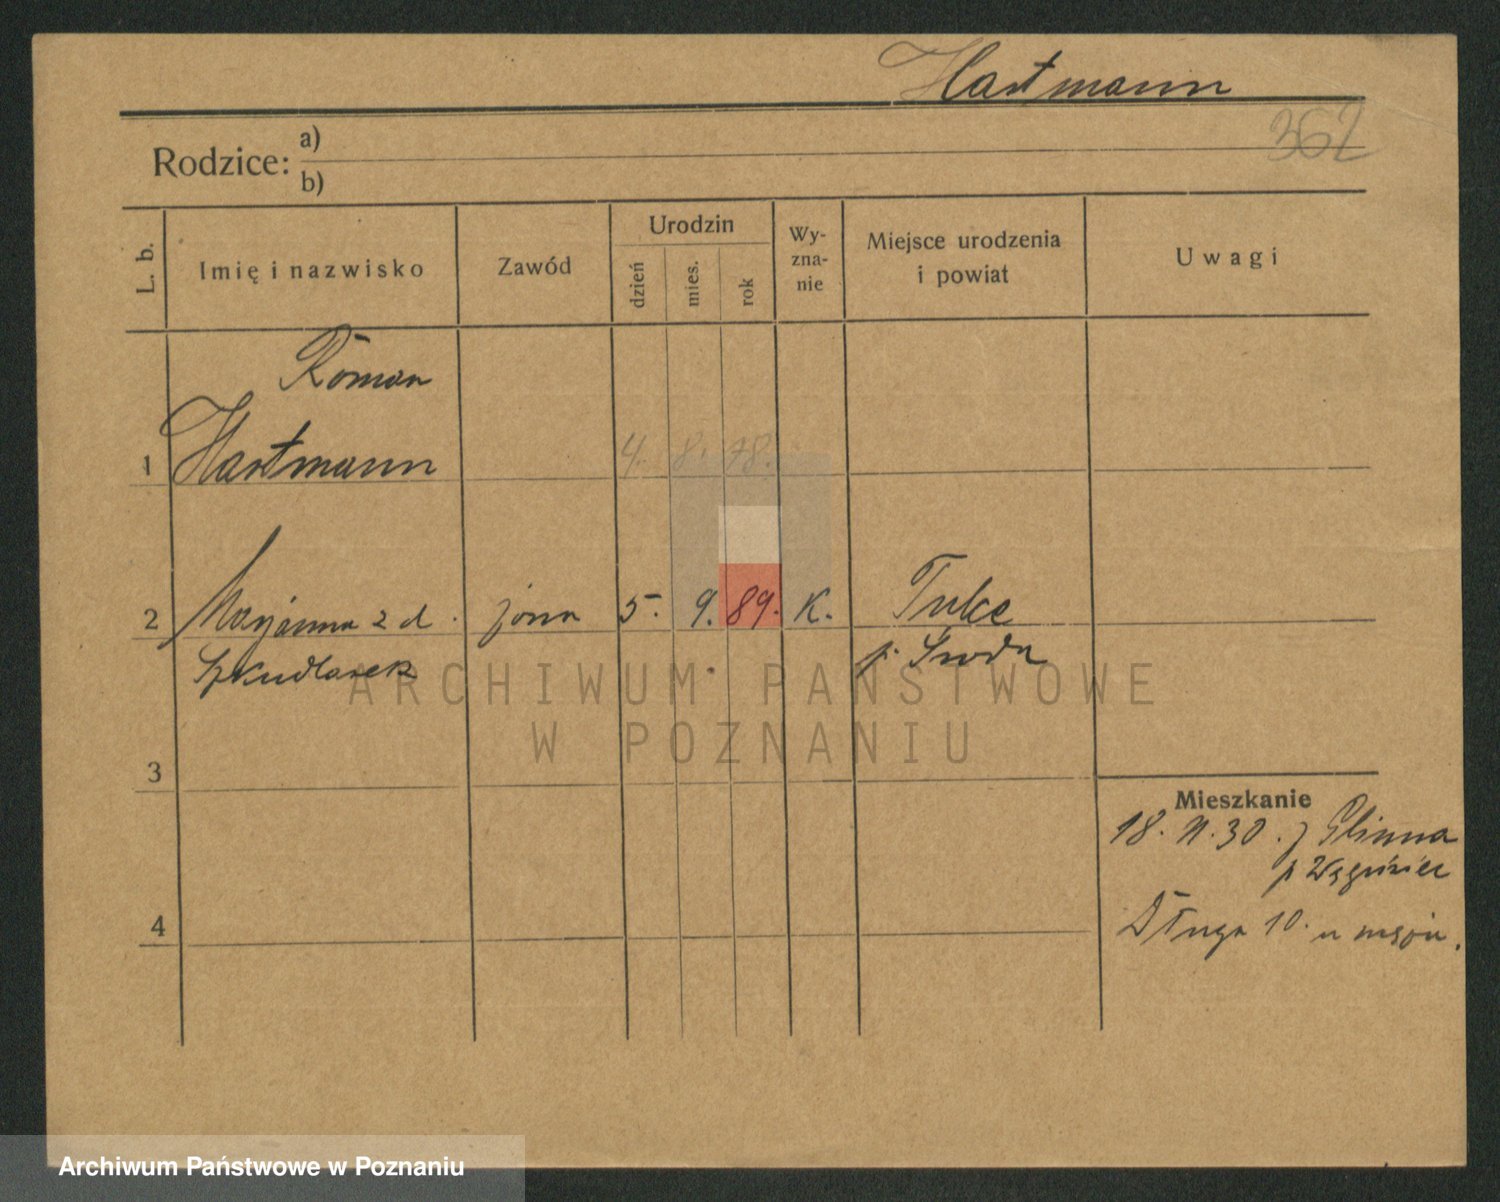 Hartmann
362
Rodzice: a)
b)
L. b.
Imię i nazwisko
Zawód
Urodzin
dzień
mies.
rok
Wy-
zna-
nie
Miejsce urodzenia
i powiat
Uwagi
Roman
1 Hartmann 4. 8. 78.
2 Maryanna z d. żona 5. 9. 89. K. Tulce
Szkudlarek p. Środa
ARCHIWUM PAŃSTWOWE
W POZNANIU
3
Mieszkanie
18. 11. 30. z Glinna
p Wągrówiec
4
Długa 10. u męża.
Archiwum Państwowe w Poznaniu